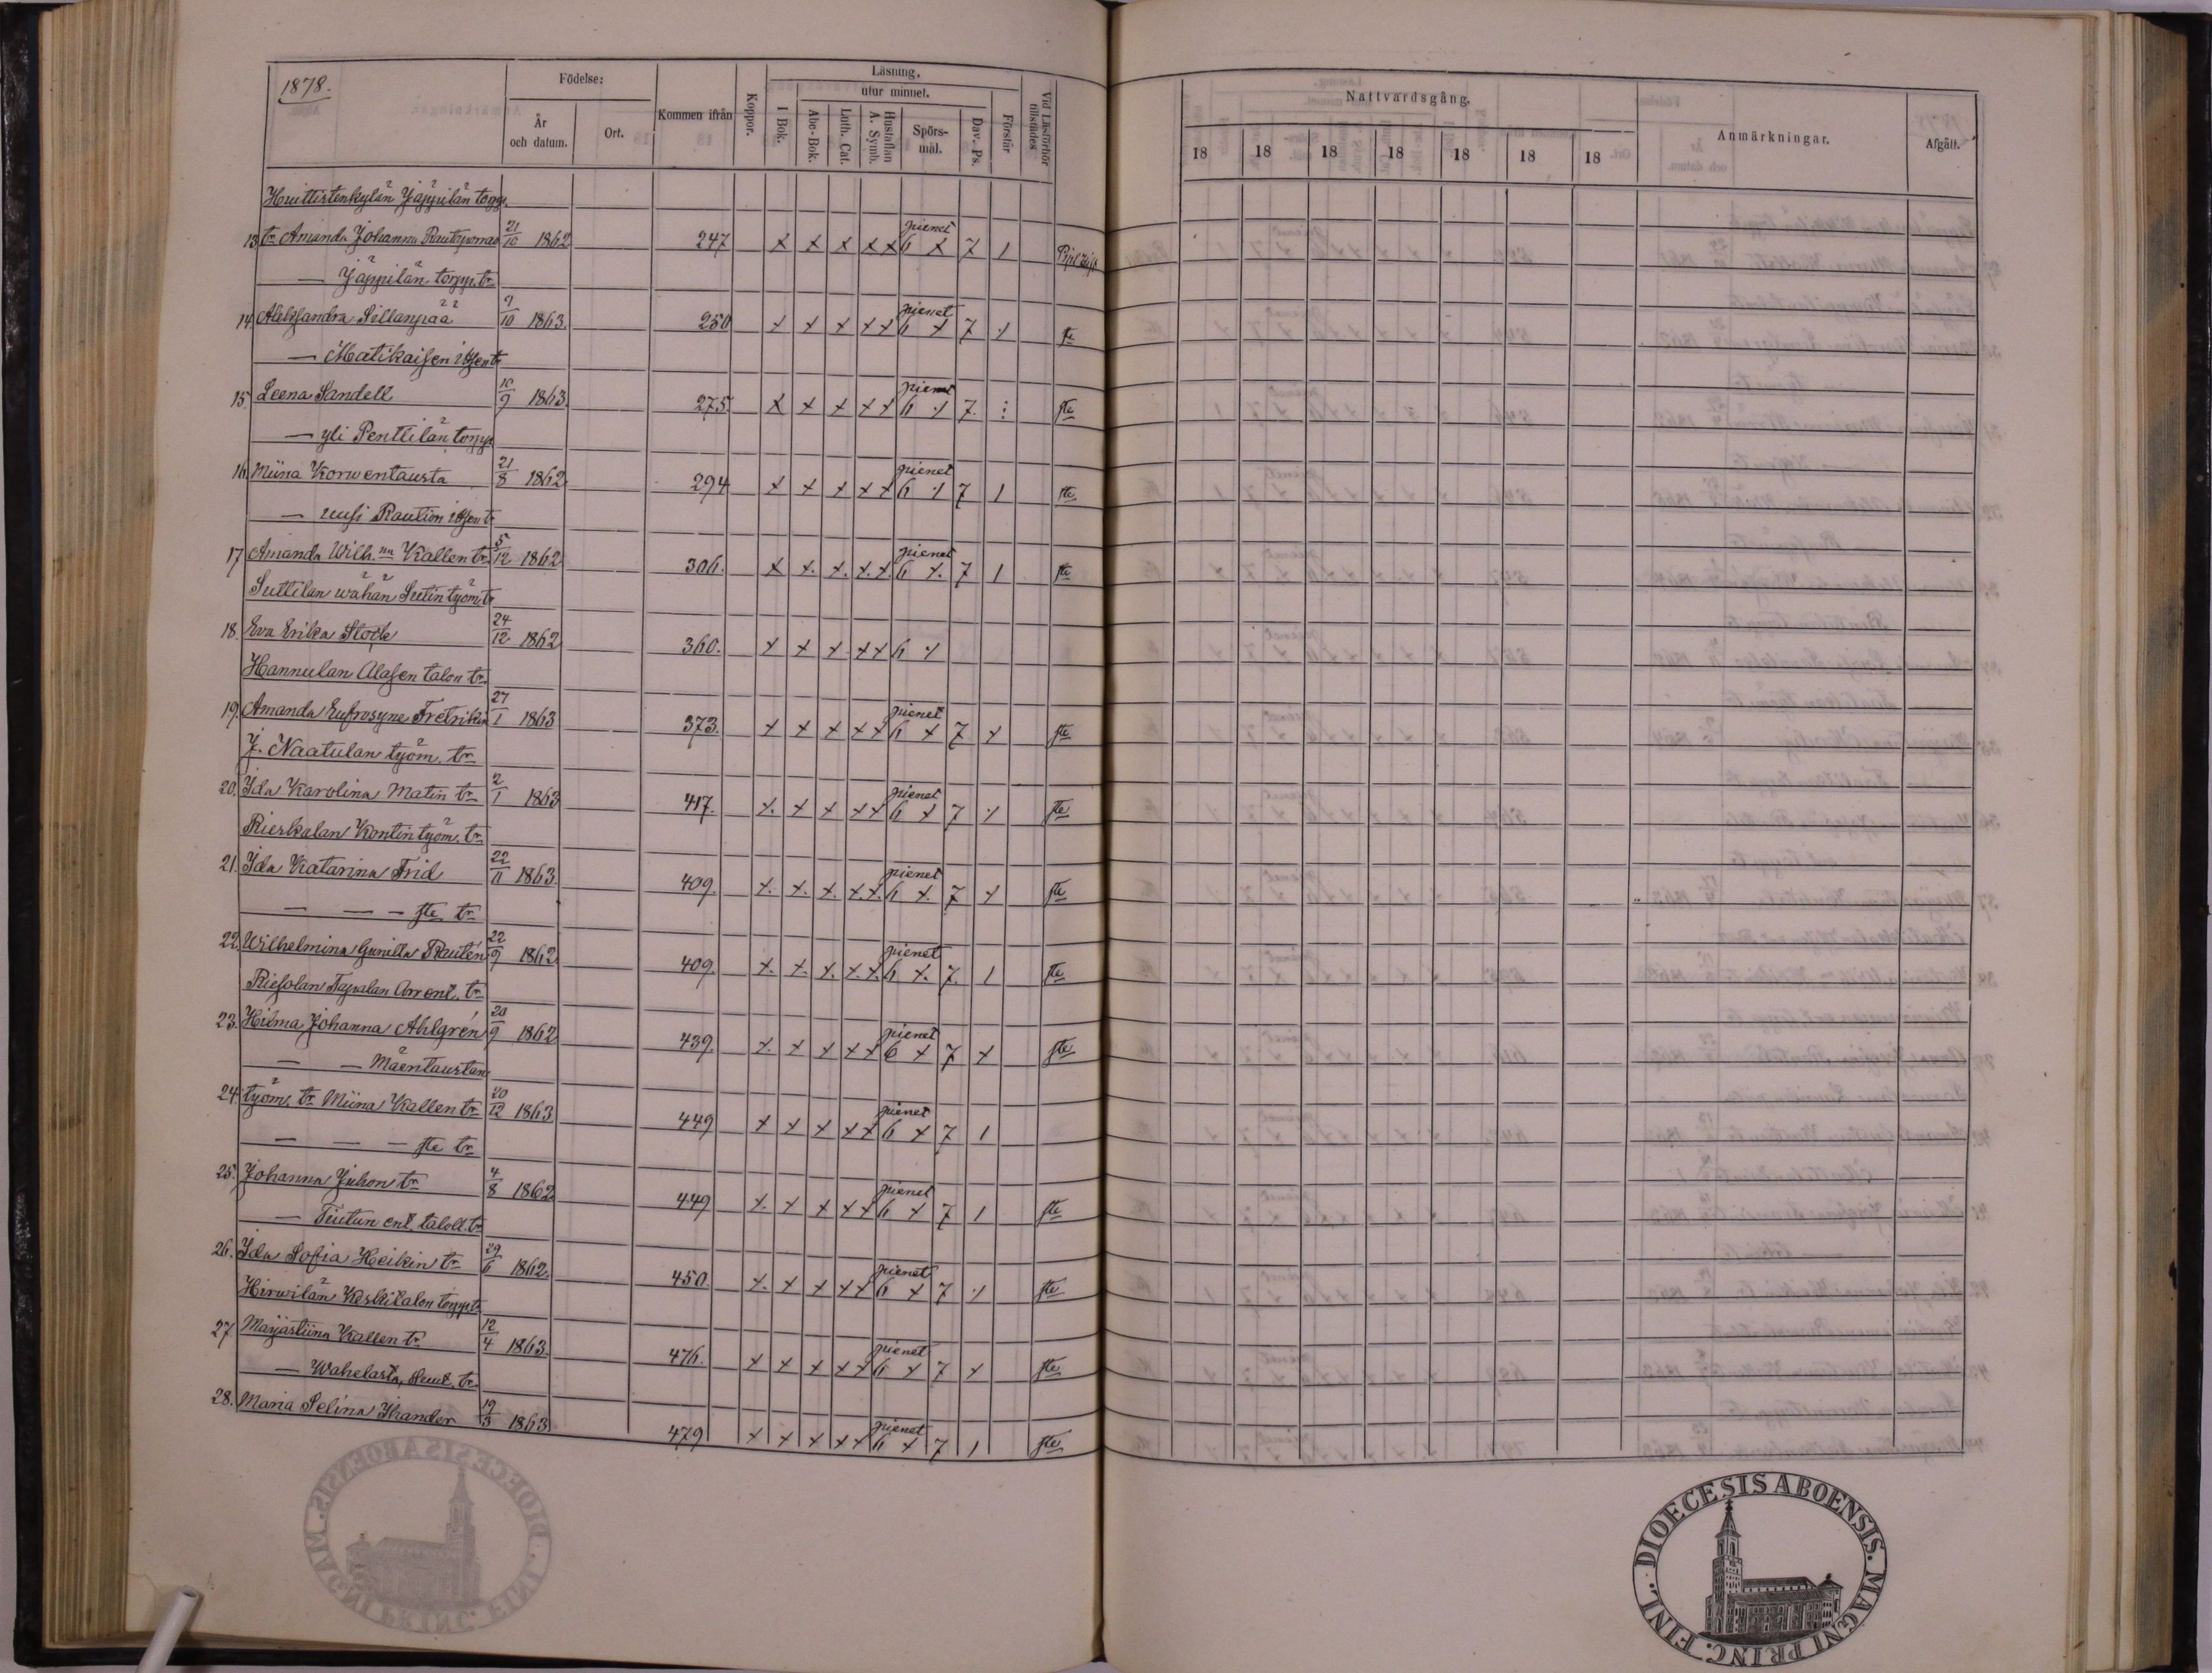 1878.
Födelse:
År och datum.
Ort.
Kommen ifrån
Koppor.
Läsning.
utur minnet.
I Bok.
Abc-Bok.
Luth. Cat.
Hustaflan A. Symb.
Spörs-mål.
Dav. Ps.
Förstår
Vid Läsförhör tillstädes
Nattvardsgång.
18 18 18 18 18 18 18
Anmärkningar.
Afgått.
Huittistenkylän Jäppilän torpp.
13. tr. Amanda Johanna 21/10 1862 247 x x x x x pienet 6 x 7 1
— Jäppilän torpp. tr.
14. Aleksandra Sillanpää 9/10 1863. 250 x x x x x pienet 6 x 7 x
— Matikaisen itsen tr.
15. Leena Sandell 10/9 1863. 275. x x x x x pienet 6 x 7.
— yli Penttilän torpp
16. Miina Korwentausta 21/8 1862 294 x x x x x pienet 6 x 7 1
— uusi Raution itsen tr.
17. Amanda Wilh.na Kallen tr. 5/12 1862 306. x x. x. x. x. pienet 6 x. 7 1
Suttilan wähän Seetin työm. tr.
18. Eva Erika Stock 24/12 1862 360. x x x x x 6 x
Hannulan Alasen talon tr.
19. Amanda Eufrosyne Fretrikin 27/1 1863 373. x x x x x pienet 6 x 7 x
J. Naatulan työm. tr.
20. Ida Karolina Matin tr. 2/1 1863 417. x. x x x x pienet 6 x 7 x
Rieskalan Kontin työm. tr.
21. Ida Katarina Frid 22/11 1863. 409. x. x. x. x. x. pienet 6 x. 7 x
— — — tr.
22. Wilhelmina Gunilla Rautén 22/9 1862 409. x. x. x. x. x. pienet 6 x. 7. 1
Riesolan Tapalan Arrent. tr.
23. Hilma Johanna Ahlgrén 20/9 1862 439. x. x x x x pienet 6 x 7 x
— — Mäentaustan
24. työm. tr. Miina Kallen tr. 20/12 1863 449 x x x x x pienet 6 x 7 1
— — — tr.
25. Johanna Juhon tr. 4/8 1862 449 x. x x x x pienet 6 x 7 1
— Tiutun ent. taloll. tr.
26. Ida Sofia Heikin tr. 29/6 1862. 450. x. x x x x pienet 6 x 7 x
Hirwilän Keskitalon torpp. tr.
27. Majastiina Kallen tr. 12/4 1863. 476. x x x x x pienet 6 x 7 x
— Wahelasta, tr.
28. Maria Selina Ikander 19/3 1863 479 x x x x x pienet 6 x 7 1
DIOECESIS ABOENSIS. MAGNI PRINC. FINL.